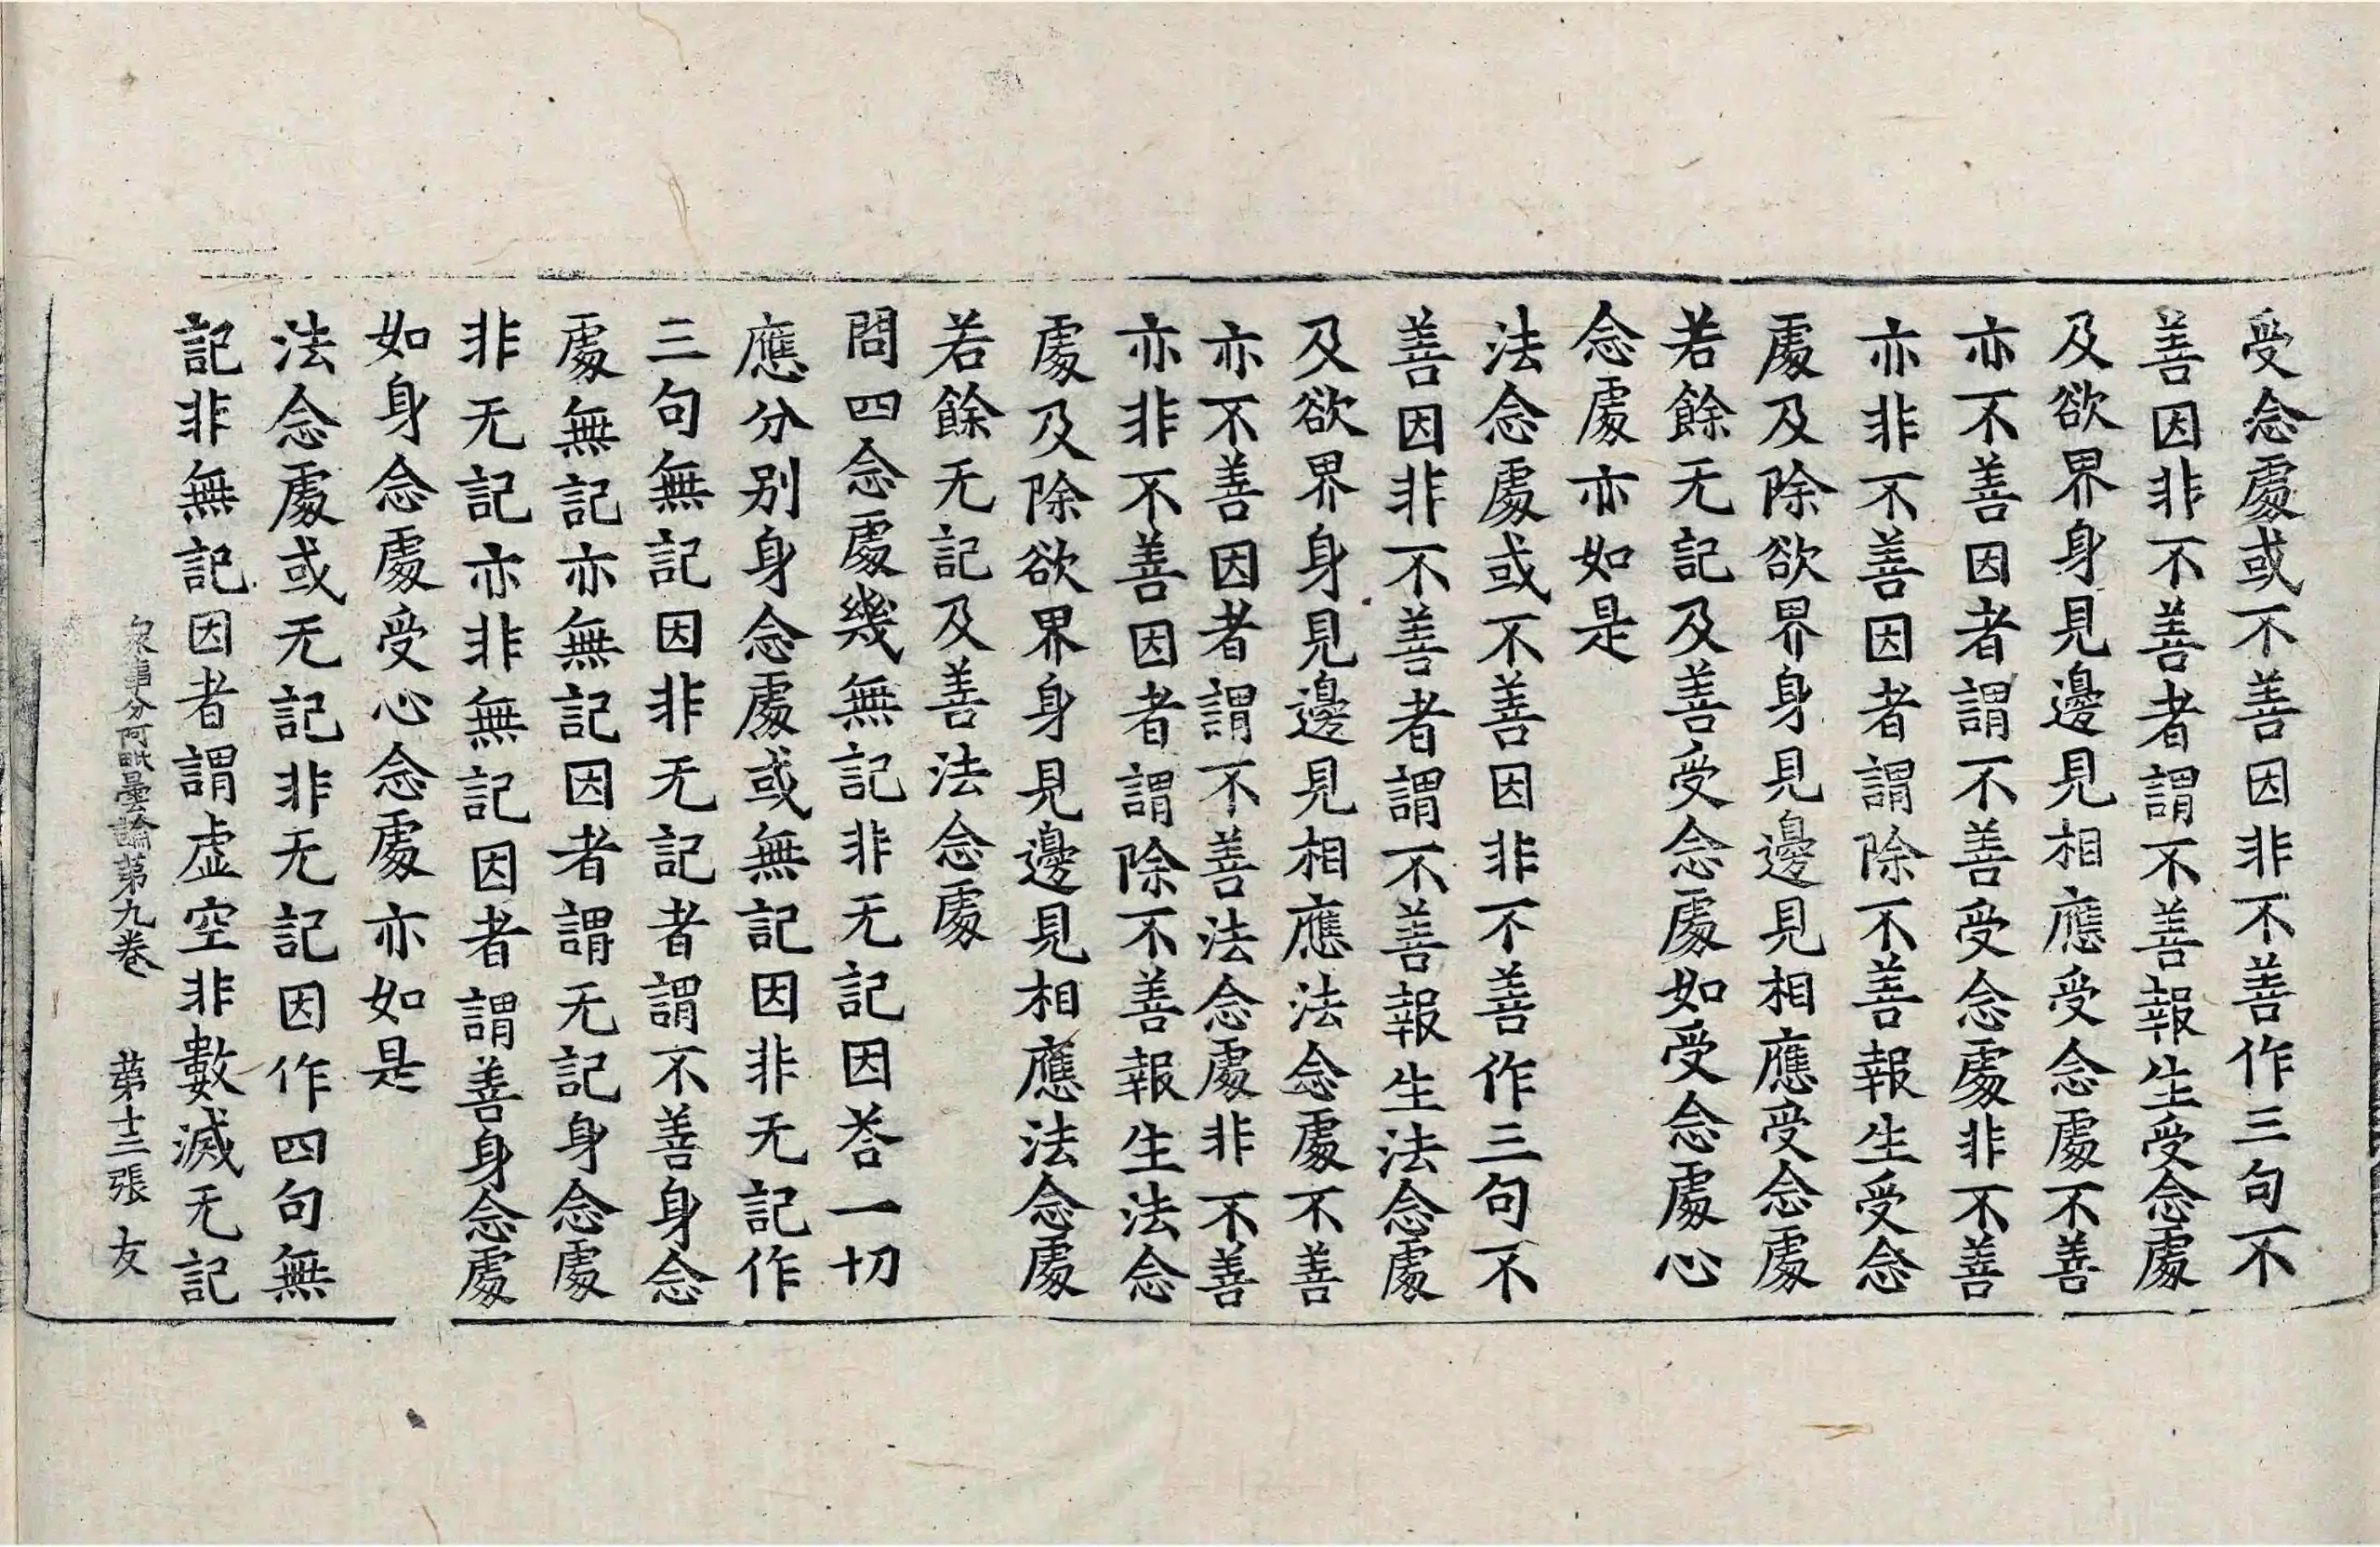 受念處或不善因非不善作三句不
善因非不善者謂不善報生受念處
及欲界身見邊見相應受念處不善
亦不善因者謂不善受念處非不善
亦非不善因者謂除不善報生受念
處及除欲界身見邊見相應受念處
若餘无記及善受念處如受念處心
念處亦如是
法念處或不善因非不善作三句不
善因非不善者謂不善報生法念處
及欲界身見邊見相應法念處不善
亦不善因者謂不善法念處非不善
亦非不善因者謂除不善報生法念
處及除欲界身見邊見相應法念處
若餘无記及善法念處
問四念處幾無記非无記因荅一切
應分別身念處或無記因非无記作
三句無記因非无記者謂不善身念
處無記亦無記因者謂无記身念處
非无記亦非無記因者謂善身念處
如身念處受心念處亦如是
法念處或无記非无記因作四句無
記非無記因者謂虛空非數滅无記
衆事分阿毗曇論第九卷 第十三張 友